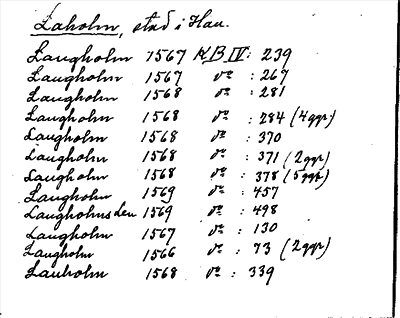 Laholm, stad i Hall.
Laugholm 1567 KB IV: 239
Laugholm 1567 do : 267
Laugholm 1568 do : 281
Laugholm 1568 do : 284 (4 ggr)
Laugholm 1568 do : 370
Laugholm 1568 do : 371 (2 ggr)
Laugholm 1568 do : 378 (5 ggr)
Laugholm 1569 do : 457
Laugholms Len 1569 do : 498
Laugholm 1567 do : 130
Laugholm 1566 do : 73 (2 ggr)
Lauholm 1568 do : 339